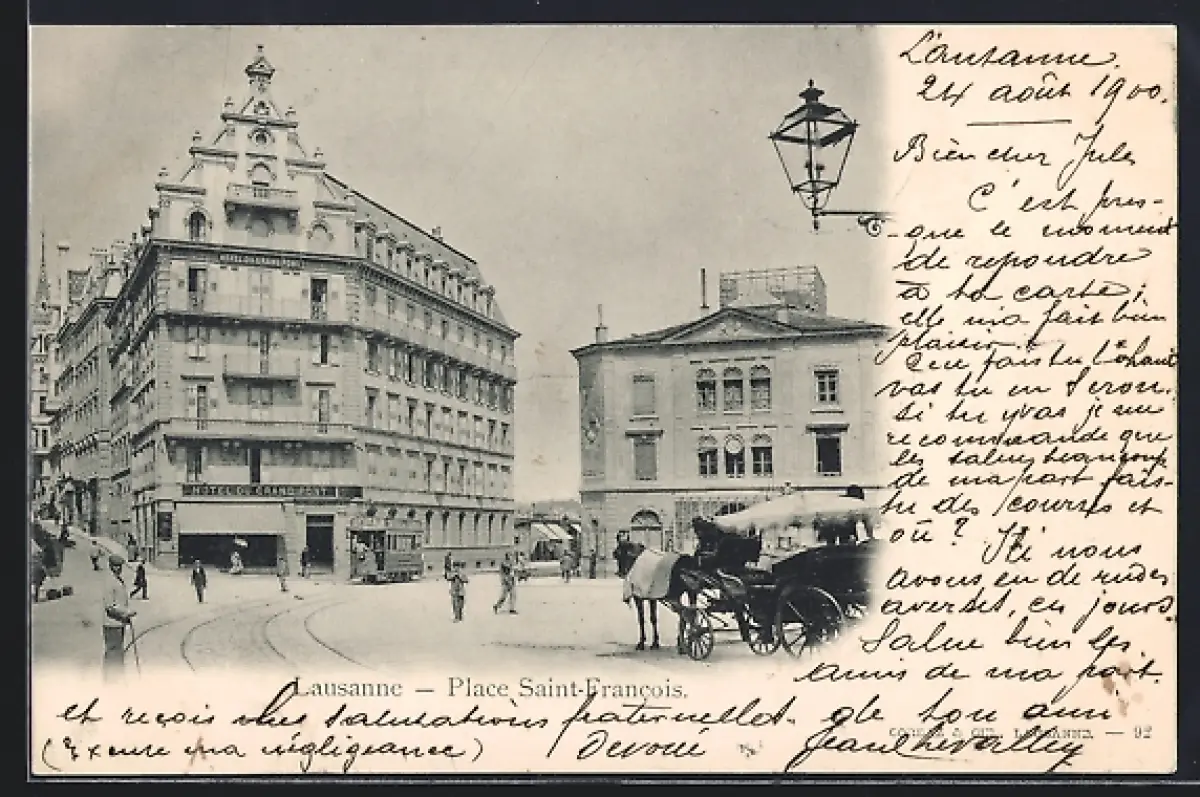 HÔTEL DU GRAND PONT
HÔTEL DU GRAND PONT
Lausanne.
24 août 1900.
Bien cher Jules
C'est pres-
que le moment
de repondre
à ta carte;
elle m'a fait bien
plaisir.
Que fais tu
vas tu en
Si tu y vas je me
recommande que
les salue beaucoup
de ma part fais-
tu des courses et
où? Ici nous
avons eu de rudes
averses, ces jours.
Salue bien les
amis de ma part.
Lausanne — Place Saint-François.
et reçois mes salutations fraternelles. de ton ami
(Excuse ma négligeance) Devoué
LAUSANNE. — 92